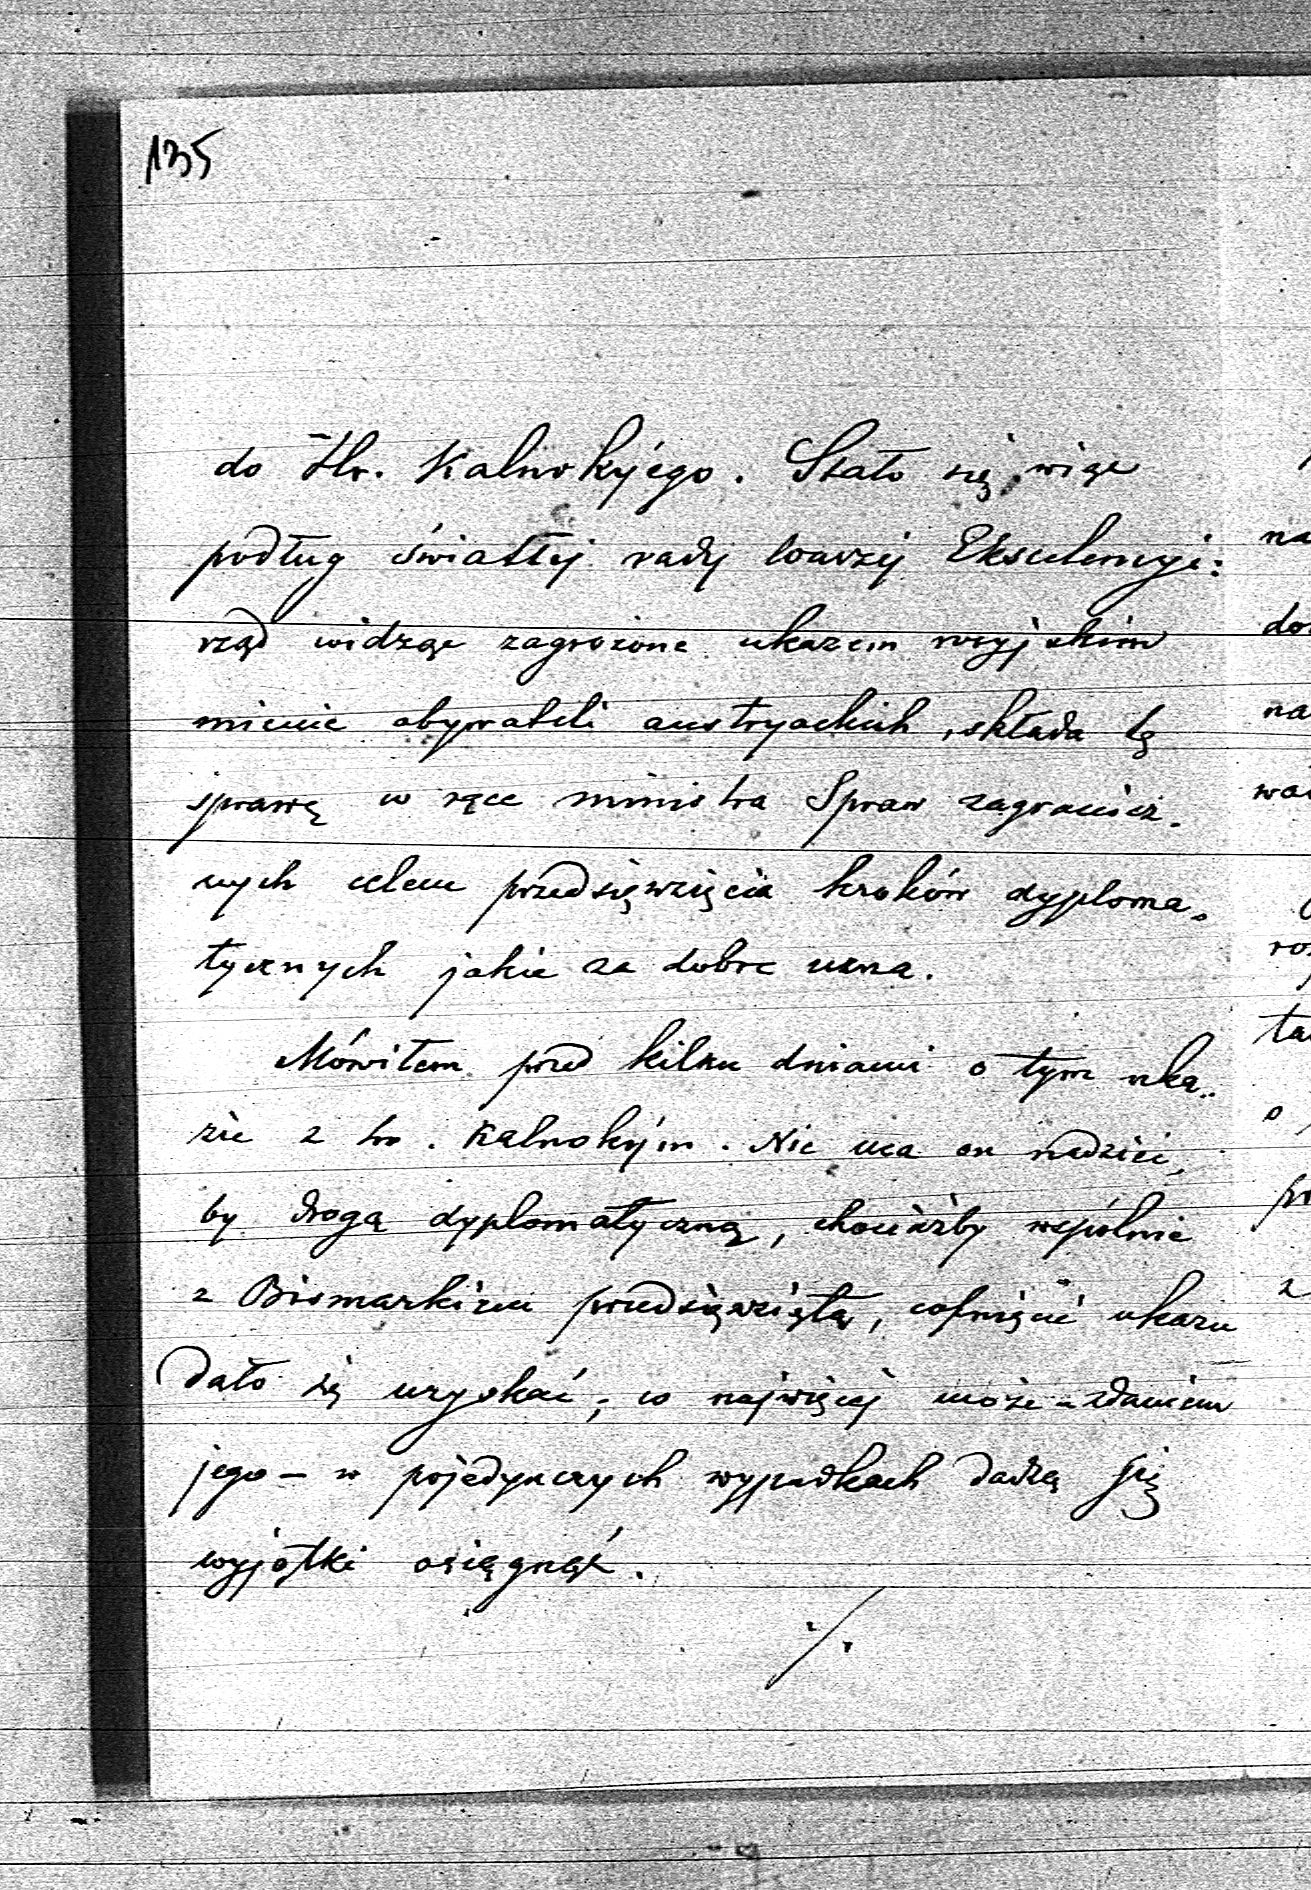 135
do Hr. Kalnokyiego. Stało się więc
podług światłej rady Waszej Ekscelencyi:
rząd widząc zagrożone ukazem rosyjskim
mienie obywateli austryackich, składa tę
sprawę w ręce ministra Spraw zagranicz-
nych celem przedsięwzięcia kroków dyploma-
tycznych jakie za dobre uzna.
Mówiłem przed kilku dniami o tym uka-
zie z hr. Kalnokyim. Nie ma on nadziei,
by drogą dyplomatyczną, chociażby wspólnie
z Bismarkiem przedsięwziętą, cofnięcie ukazu
dało się uzyskać; co najwięcej może - zdaniem
jego - w pojedynczych wypadkach dadzą się
wyjątki osiągnąć.
./.
na
do
na
ro
ta
o
z